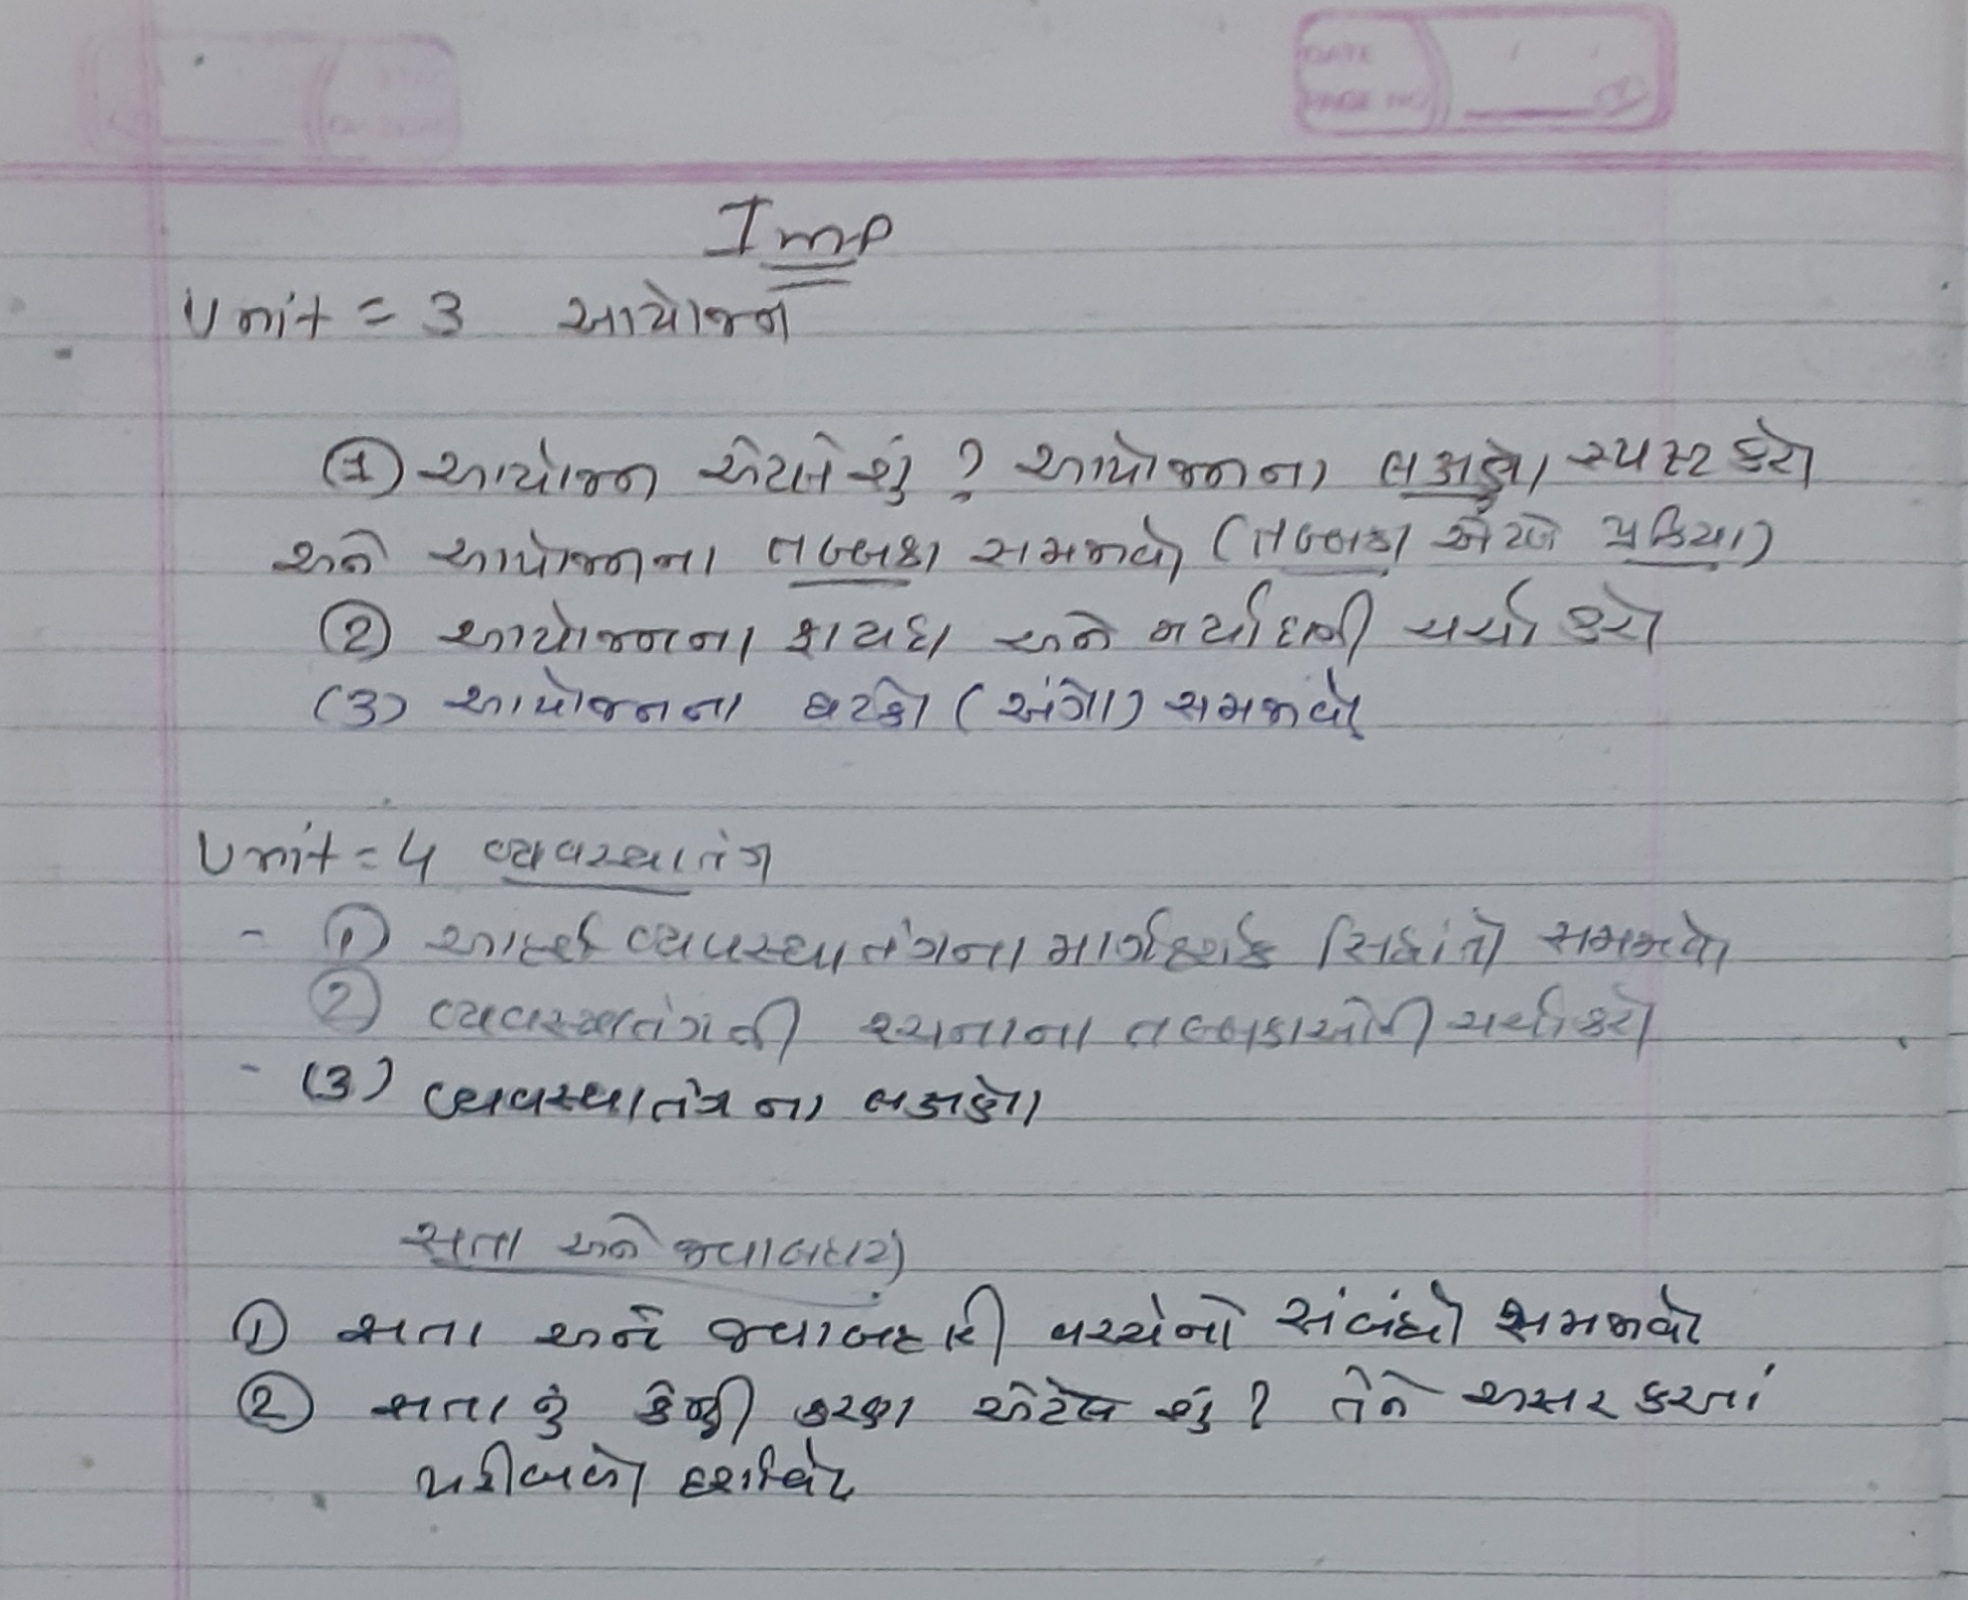 DATE
PAGE NO.
Imp
Unit = 3 આયોજન
(1) આયોજન એટલે શું ? આયોજનના લક્ષણો સ્પષ્ટ કરો
અને આયોજનના તબ્બકા સમજાવો (તબ્બકા એટલે પ્રક્રિયા)
(2) આયોજનના ફાયદા અને મર્યાદાની ચર્ચા કરો
(3) આયોજનના ઘટકો (અંગો) સમજાવો
Unit = 4 વ્યવસ્થાતંત્ર
- (1) આદર્શ વ્યવસ્થાતંત્રના માર્ગદર્શક સિદ્ધાંતો સમજાવો
(2) વ્યવસ્થાતંત્રની રચનાના તબ્બકાઓની ચર્ચા કરો
- (3) વ્યવસ્થાતંત્ર ના લક્ષણો
સતા અને જવાબદારી
(1) સતા અને જવાબદારી વચ્ચેનો સંબંધો સમજાવો
(2) સતા નું કેન્દ્રી કરણ એટલે શું ? તેને અસર કરતાં
પરીબળો દર્શાવો